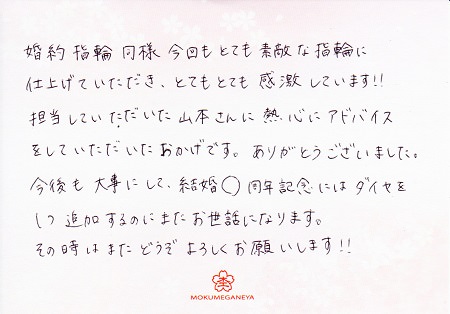 婚約指輪同様 今回もとても素敵な指輪に
仕上げていただき、とてもとても感激しています!!
担当していただいた山本さんに熱心にアドバイス
をしていただいたおかげです。ありがとうございました。
今後も大事にして、結婚〇周年記念にはダイヤを
1つ追加するのにまたお世話になります。
その時はまたどうぞよろしくお願いします!!
MOKUMEGANEYA